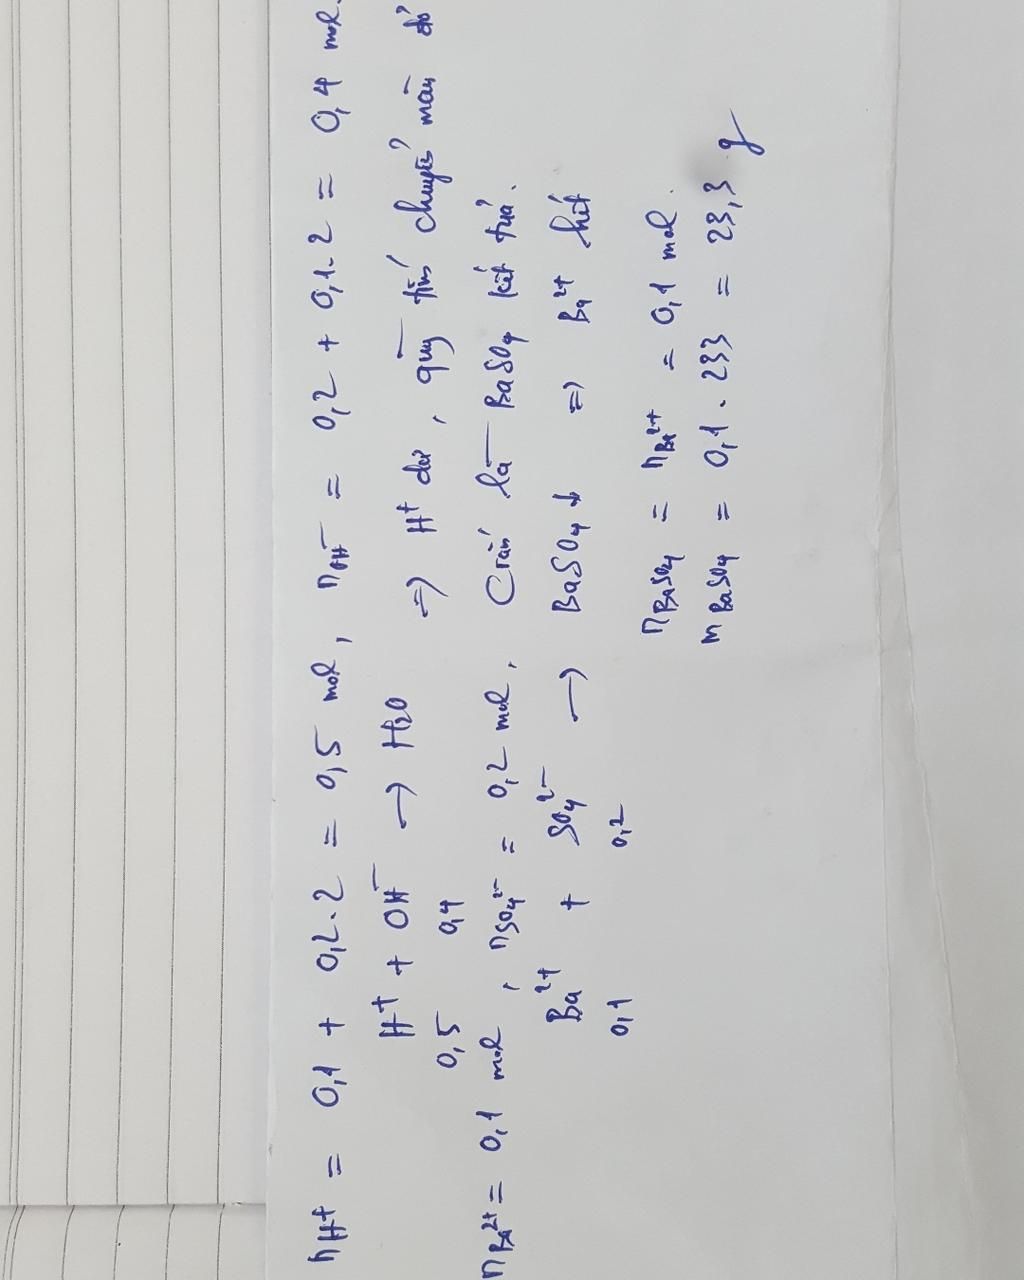 nH⁺ = 0,1 + 0,2.2 = 0,5 mol, nOH⁻ = 0,2 + 0,1.2 = 0,4 mol.
H⁺ + OH⁻ → H₂O ⇒ H⁺ dư, quỳ tím chuyển màu đỏ
0,5 0,4
nBa²⁺ = 0,1 mol, nSO₄²⁻ = 0,2 mol, Crắn là BaSO₄ kết tủa.
Ba²⁺ + SO₄²⁻ → BaSO₄↓ ⇒ Ba²⁺ hết
0,1 0,2
nBaSO₄ = nBa²⁺ = 0,1 mol.
mBaSO₄ = 0,1.233 = 23,3 g